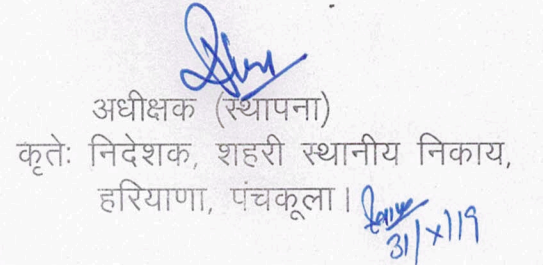 अधीक्षक (स्थापना)
कृतेः निदेशक, शहरी स्थानीय निकाय,
हरियाणा, पंचकूला।
31/x/19